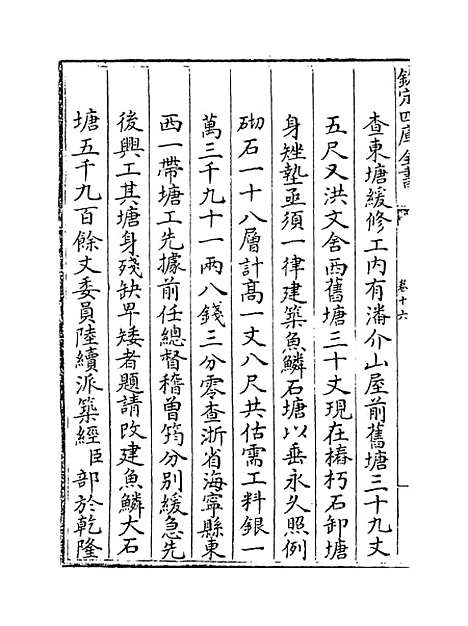 欽定四庫全書
卷十六
查東塘緩修工内有潘介山屋前舊塘三十九丈
五尺又洪文舍西舊塘三十丈現在樁朽石卸塘
身矬墊亟須一律建築魚鱗石塘以垂永久照例
砌石一十八層計髙一丈八尺共估需工料銀一
萬三千九十一兩八錢三分零查浙省海寧縣東
西一帶塘工先據前任總督稽曽筠分别緩急先
後興工其塘身殘缺早矮者題請改建魚鱗大石
塘五千九百餘丈委員陸續派築經臣部於乾隆